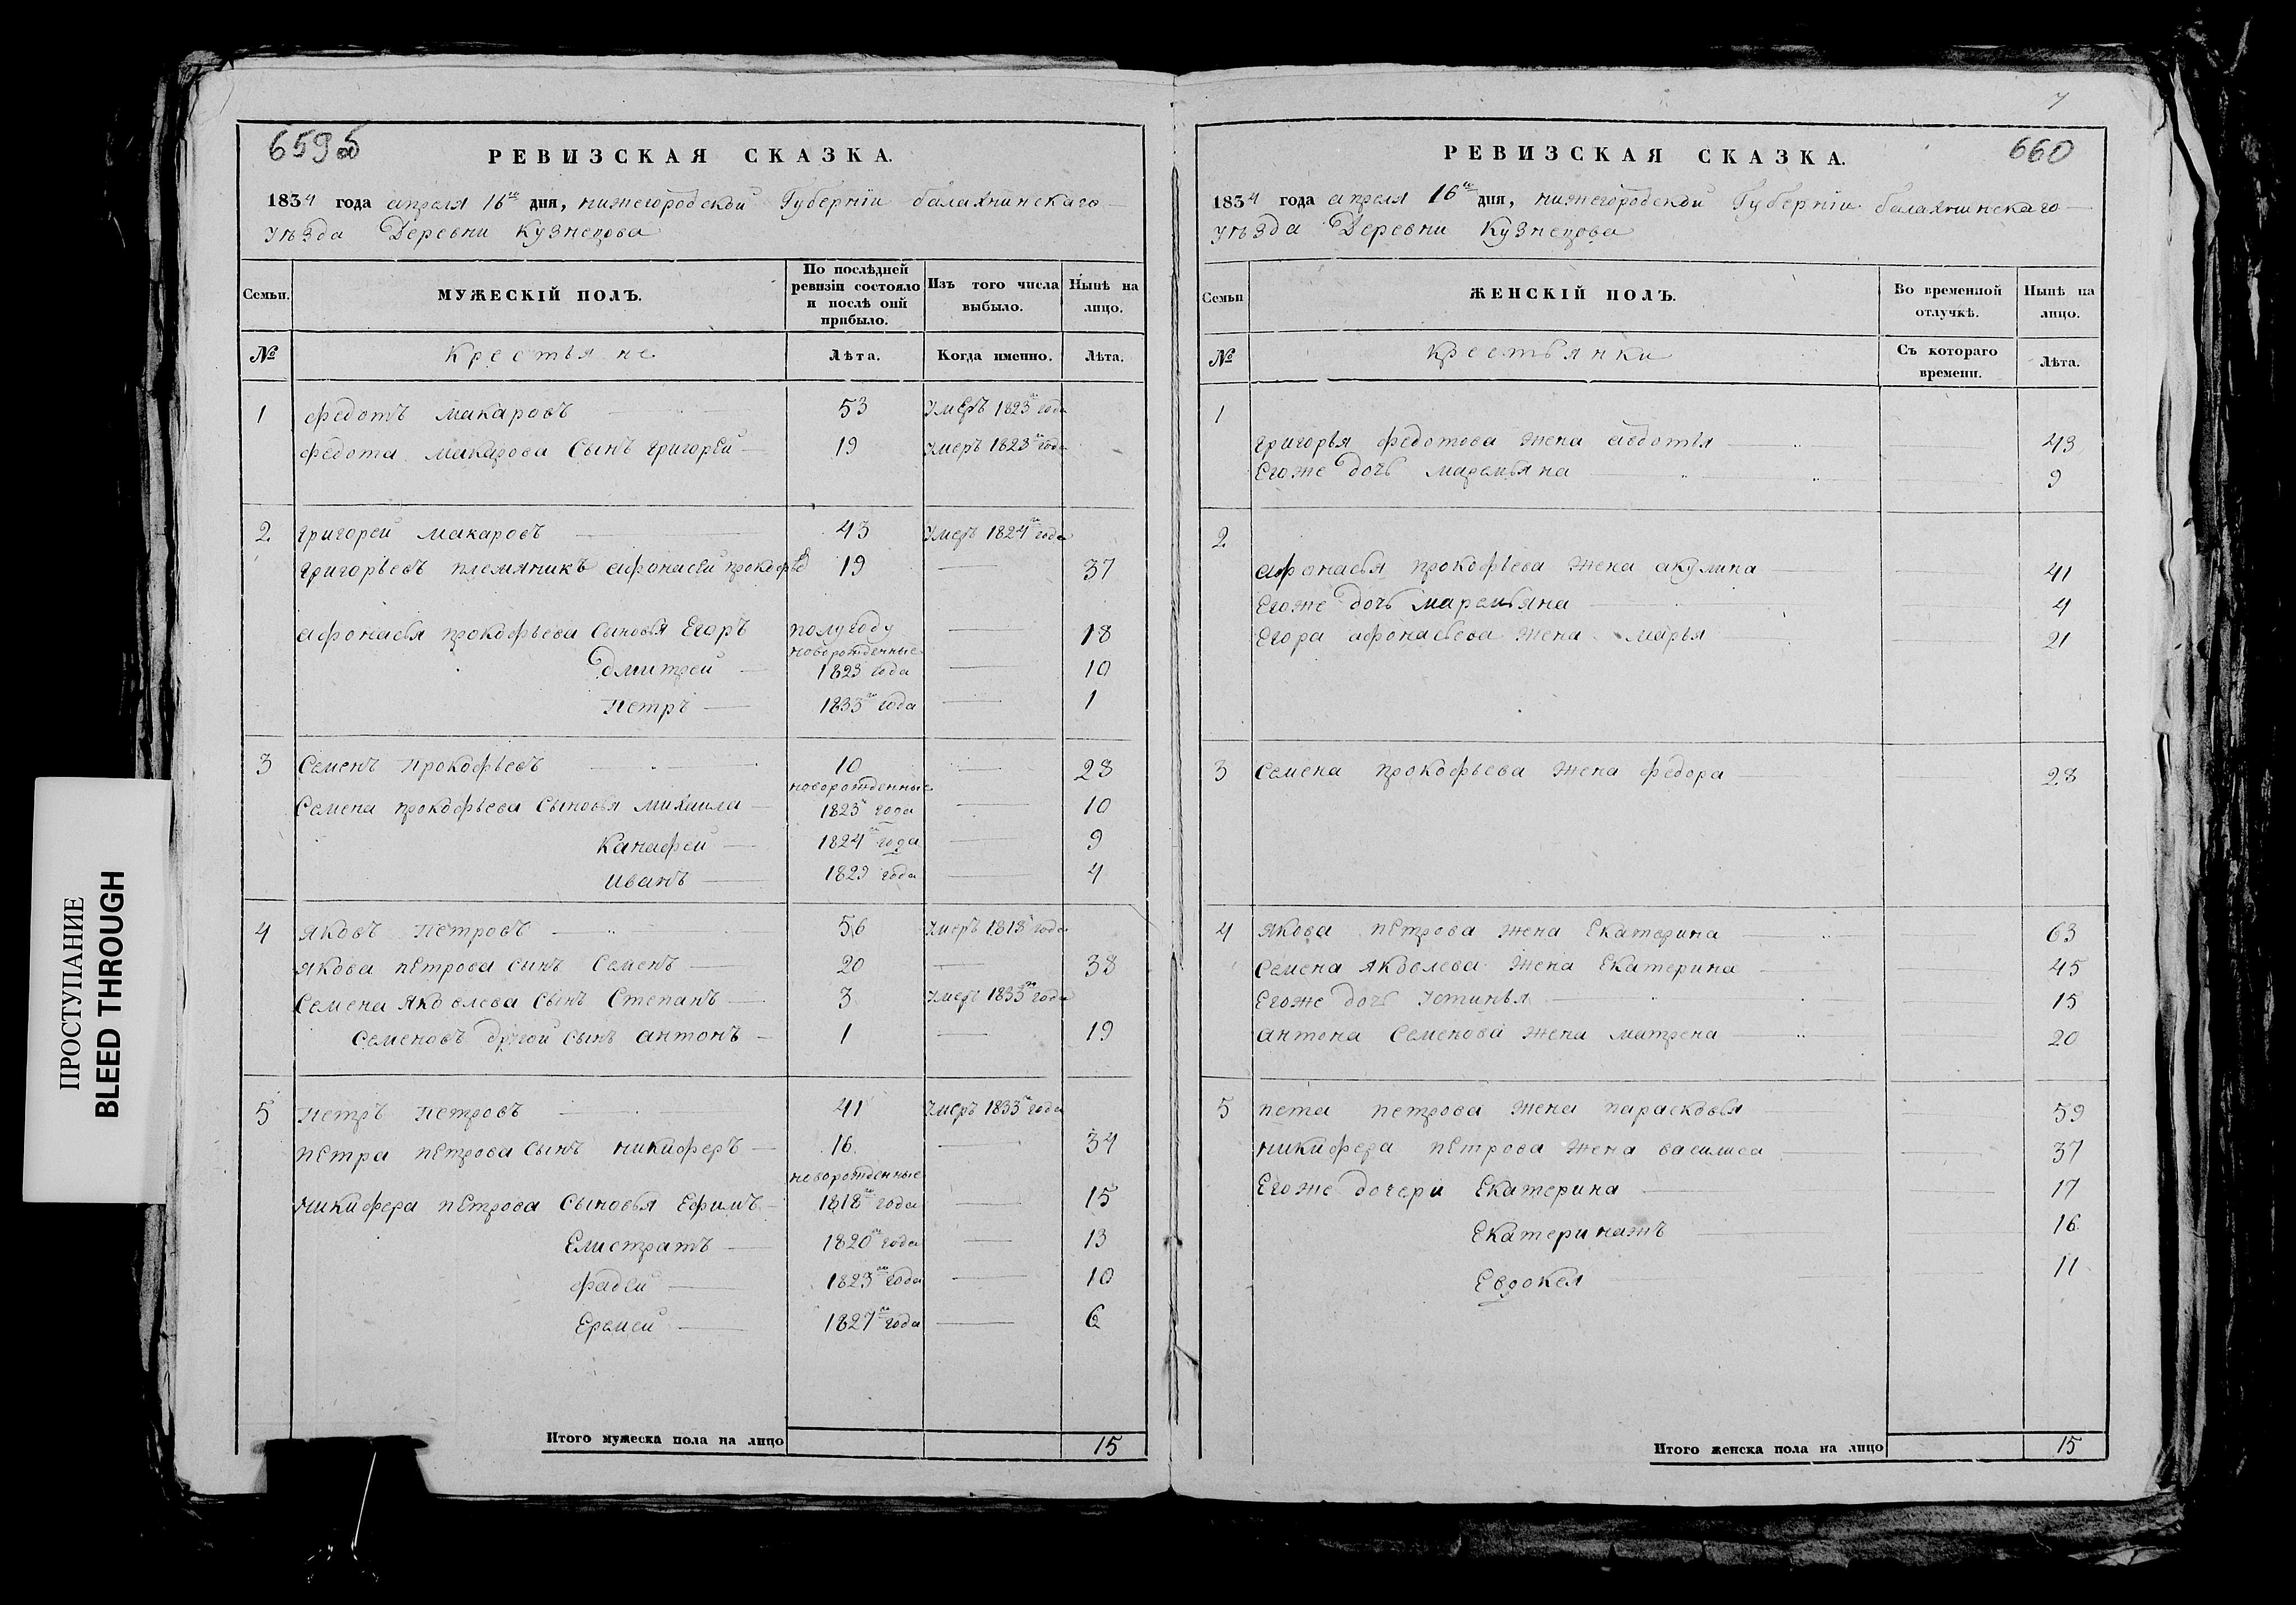 ПРОСТУПАНИЕ
BLEED THROUGH
659 об
РЕВИЗСКАЯ СКАЗКА.
1834 года апреля 16го дня, нижегородской Губерніи балахнинскаго
уѣзда Деревни Кузнецова
Семьи. МУЖЕСКІЙ ПОЛЪ. По послѣдней ревизіи состояло и послѣ оній прибыло. Изъ того числа выбыло. Нынѣ на лицо.
№ Крестьяне Лѣта. Когда именно. Лѣта.
1 федотъ макаровъ 53 умеръ 1823го года
федота макарова Сынъ григорей 19 умеръ 1823го года
2 григорей макаровъ 43 умеръ 1824го года
григорьевъ племяникъ афонасей прокофьев 19 37
афонасья прокофьева Сыновья Егоръ полугоду 18
новорожденные
дмитрей 1823 года 10
петръ 1833го года 1
3 Семенъ прокофьевъ 10 28
новорожденные
Семена прокофьева Сыновья михаила 1823 года 10
Канафей 1824го года 9
иванъ 1829 года 4
4 яковъ петровъ 56 умеръ 1818го года
якова петрова сынъ Семенъ 20 38
Семена яковлева Сынъ Степанъ 3 умеръ 1833го года
Семеновъ другой сынъ антонъ 1 19
5 петръ петровъ 41 умеръ 1833го года
петра петрова Сынъ никиферъ 16 34
новорожденные
никифера петрова Сыновья Ефимъ 1818го года 15
Елистратъ 1820го года 13
фадей 1823го года 10
Еремей 1827го года 6
Итого мужеска пола на лицо 15
7
660
РЕВИЗСКАЯ СКАЗКА.
1834 года апреля 16го дня, нижегородской Губерніи балахнинскаго
уѣзда Деревни Кузнецова
Семьи ЖЕНСКІЙ ПОЛЪ. Во временной отлучкѣ. Нынѣ на лицо.
№ Крестьянки Съ котораго времени. Лѣта.
1
григорья федотова жена авдотья 43
Егоже дочь маремьяна 9
2
афонасья прокофьева жена акулина 41
Егоже дочь маремьяна 4
Егора афонасьева жена марья 21
3 Семена прокофьева жена федора 28
4 якова петрова жена Екатерина 63
Семена яковлева жена Екатерина 45
Егоже дочь устинья 15
антона Семенова жена матрена 20
5 пета петрова жена парасковья 59
никифера петрова жена василиса 37
Егоже дочери Екатерина 17
Екатеринажъ 16
Евдокея 11
Итого женска пола на лицо 15